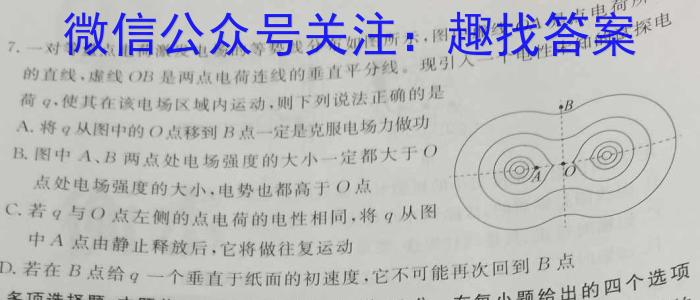 微信公众号关注：趣找答案
7.一对等量点电荷激发电场的等势线分布如图所示,图
的直线,虚线OB是两点电荷连线的垂直平分线。现引入一个电性未知的试探电
荷q,使其在该电场区域内运动,则下列说法正确的是
A.将q从图中的O点移到B点一定是克服电场力做功
B.图中A、B两点处电场强度的大小一定都大于O
点处电场强度的大小,电势也都高于O点
C.若q与O点左侧的点电荷的电性相同,将q从图
中A点由静止释放后,它将做往复运动
D.若在B点给q一个垂直于纸面的初速度,它不可能再次回到B点
B
A
O
多项选择题
在每小题给出的四个选项